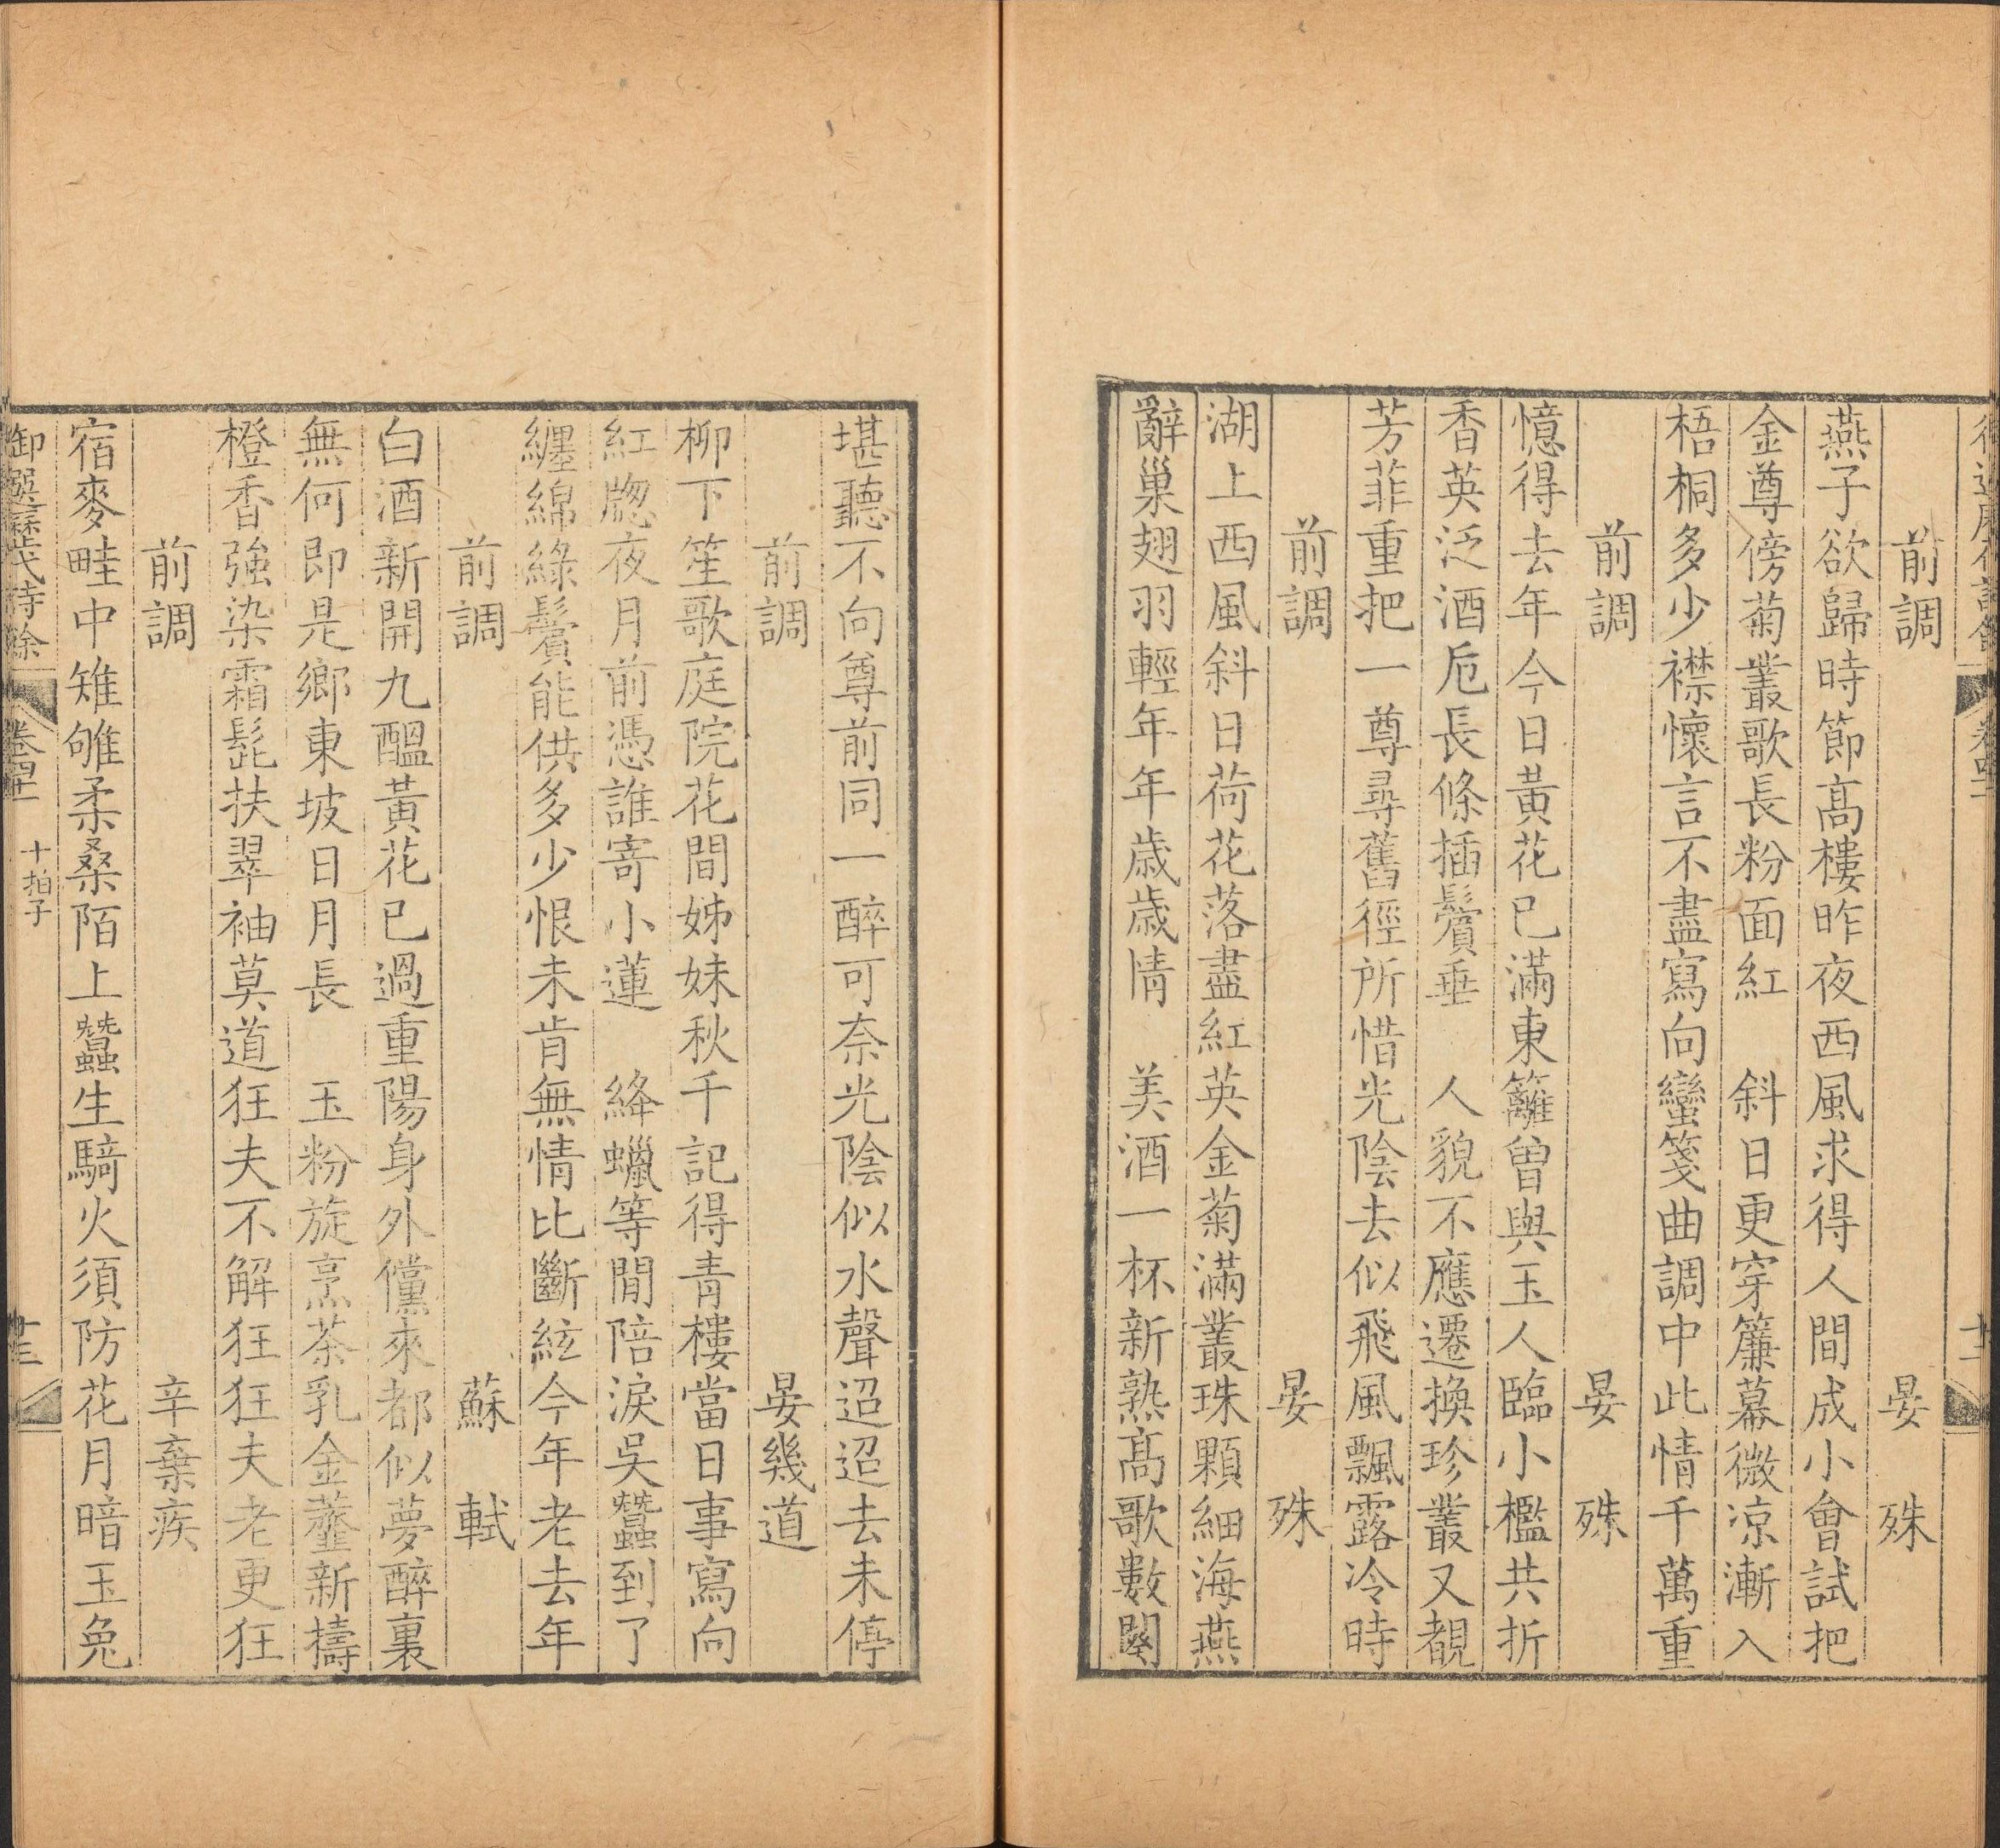 前調 晏殊
燕子欲歸時節高樓昨夜西風求得人間成小會試把
金尊傍菊叢歌長粉面紅 斜日更穿簾幕微涼漸入
梧桐多少襟懷言不盡寫向蠻箋曲調中此情千萬重
前調 晏殊
憶得去年今日黃花已滿東籬曾與玉人臨小檻共折
香英泛酒卮長條插鬢垂 人貌不應遷換珍叢又覩
芳菲重把一尊尋舊徑所惜光陰去似飛風飄露冷時
前調 晏殊
湖上西風斜日荷花落盡紅英金菊滿叢珠顆細海燕
辭巢翅羽輕年年歲歲情 美酒一杯新熟高歌數闋
堪聽不向尊前同一醉可奈光陰似水聲迢迢去未停
前調 晏幾道
柳下笙歌庭院花間姊妹秋千記得青樓當日事寫向
紅牕夜月前憑誰寄小蓮 絳蠟等閒陪淚吳蠶到了
纏綿綠鬢能供多少恨未肯無情比斷絃今年老去年
前調 蘇軾
白酒新開九醞黃花已過重陽身外儻來都似夢醉裏
無何即是鄉東坡日月長 玉粉旋烹茶乳金虀新擣
橙香強染霜髭扶翠袖莫道狂夫不解狂狂夫老更狂
前調 辛棄疾
宿麥畦中雉雊柔桑陌上蠶生騎火須防花月暗玉兔
御選歷代詩餘 卷四十一 十拍子 十三